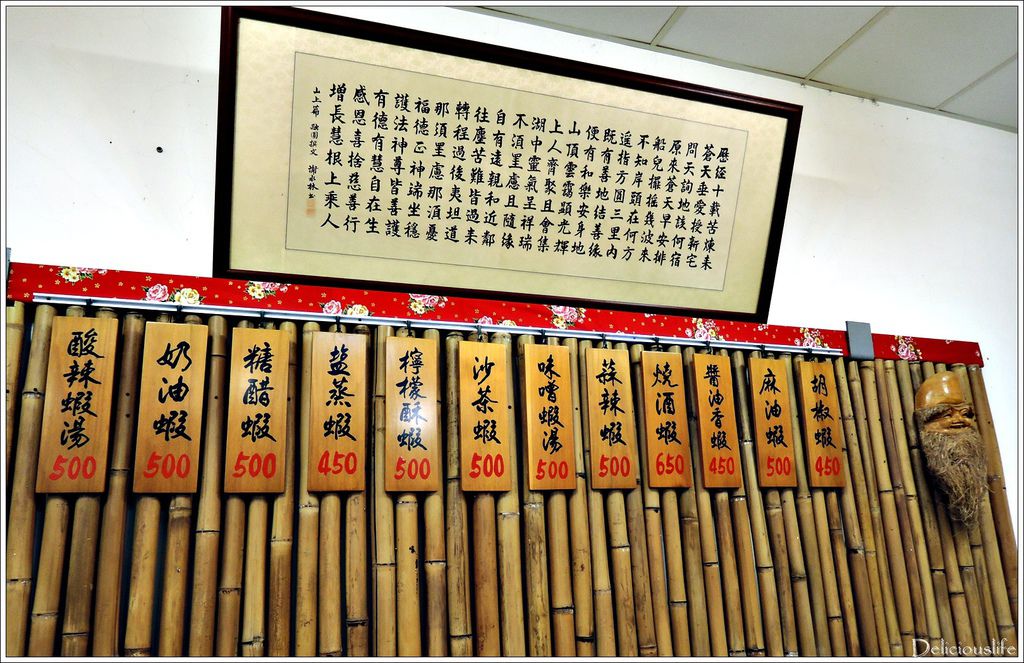 歷經十載苦煉來
蒼天垂愛授新宅
問天詢地該何宿
原來蒼天早安排
船兒搖搖幾波來
不知岸頭在何方
遥指方圓三里內
既有善地結善緣
便有和樂安身地
山頂雲靄顯光輝
上人齊聚且會集
湖中靈氣呈祥瑞
不須罣慮且隨緣
自有遠親和近鄰
往塵苦難皆過来
轉程過後夷坦道
那須罣慮那湏憂
福德正神端坐穩
護法神尊皆善護
有德有慧自在生
感恩喜捨慈善行
增長慧根上乘人
山上篇 融園撰文 謝永林書
酸辣蝦湯
500
奶油蝦
500
糖醋蝦
500
盐蒸蝦
450
檸檬酥蝦
500
沙茶蝦
500
味噌蝦湯
500
蒜辣蝦
500
燒酒蝦
650
醬油香蝦
450
麻油蝦
500
胡椒蝦
450
Deliciouslife